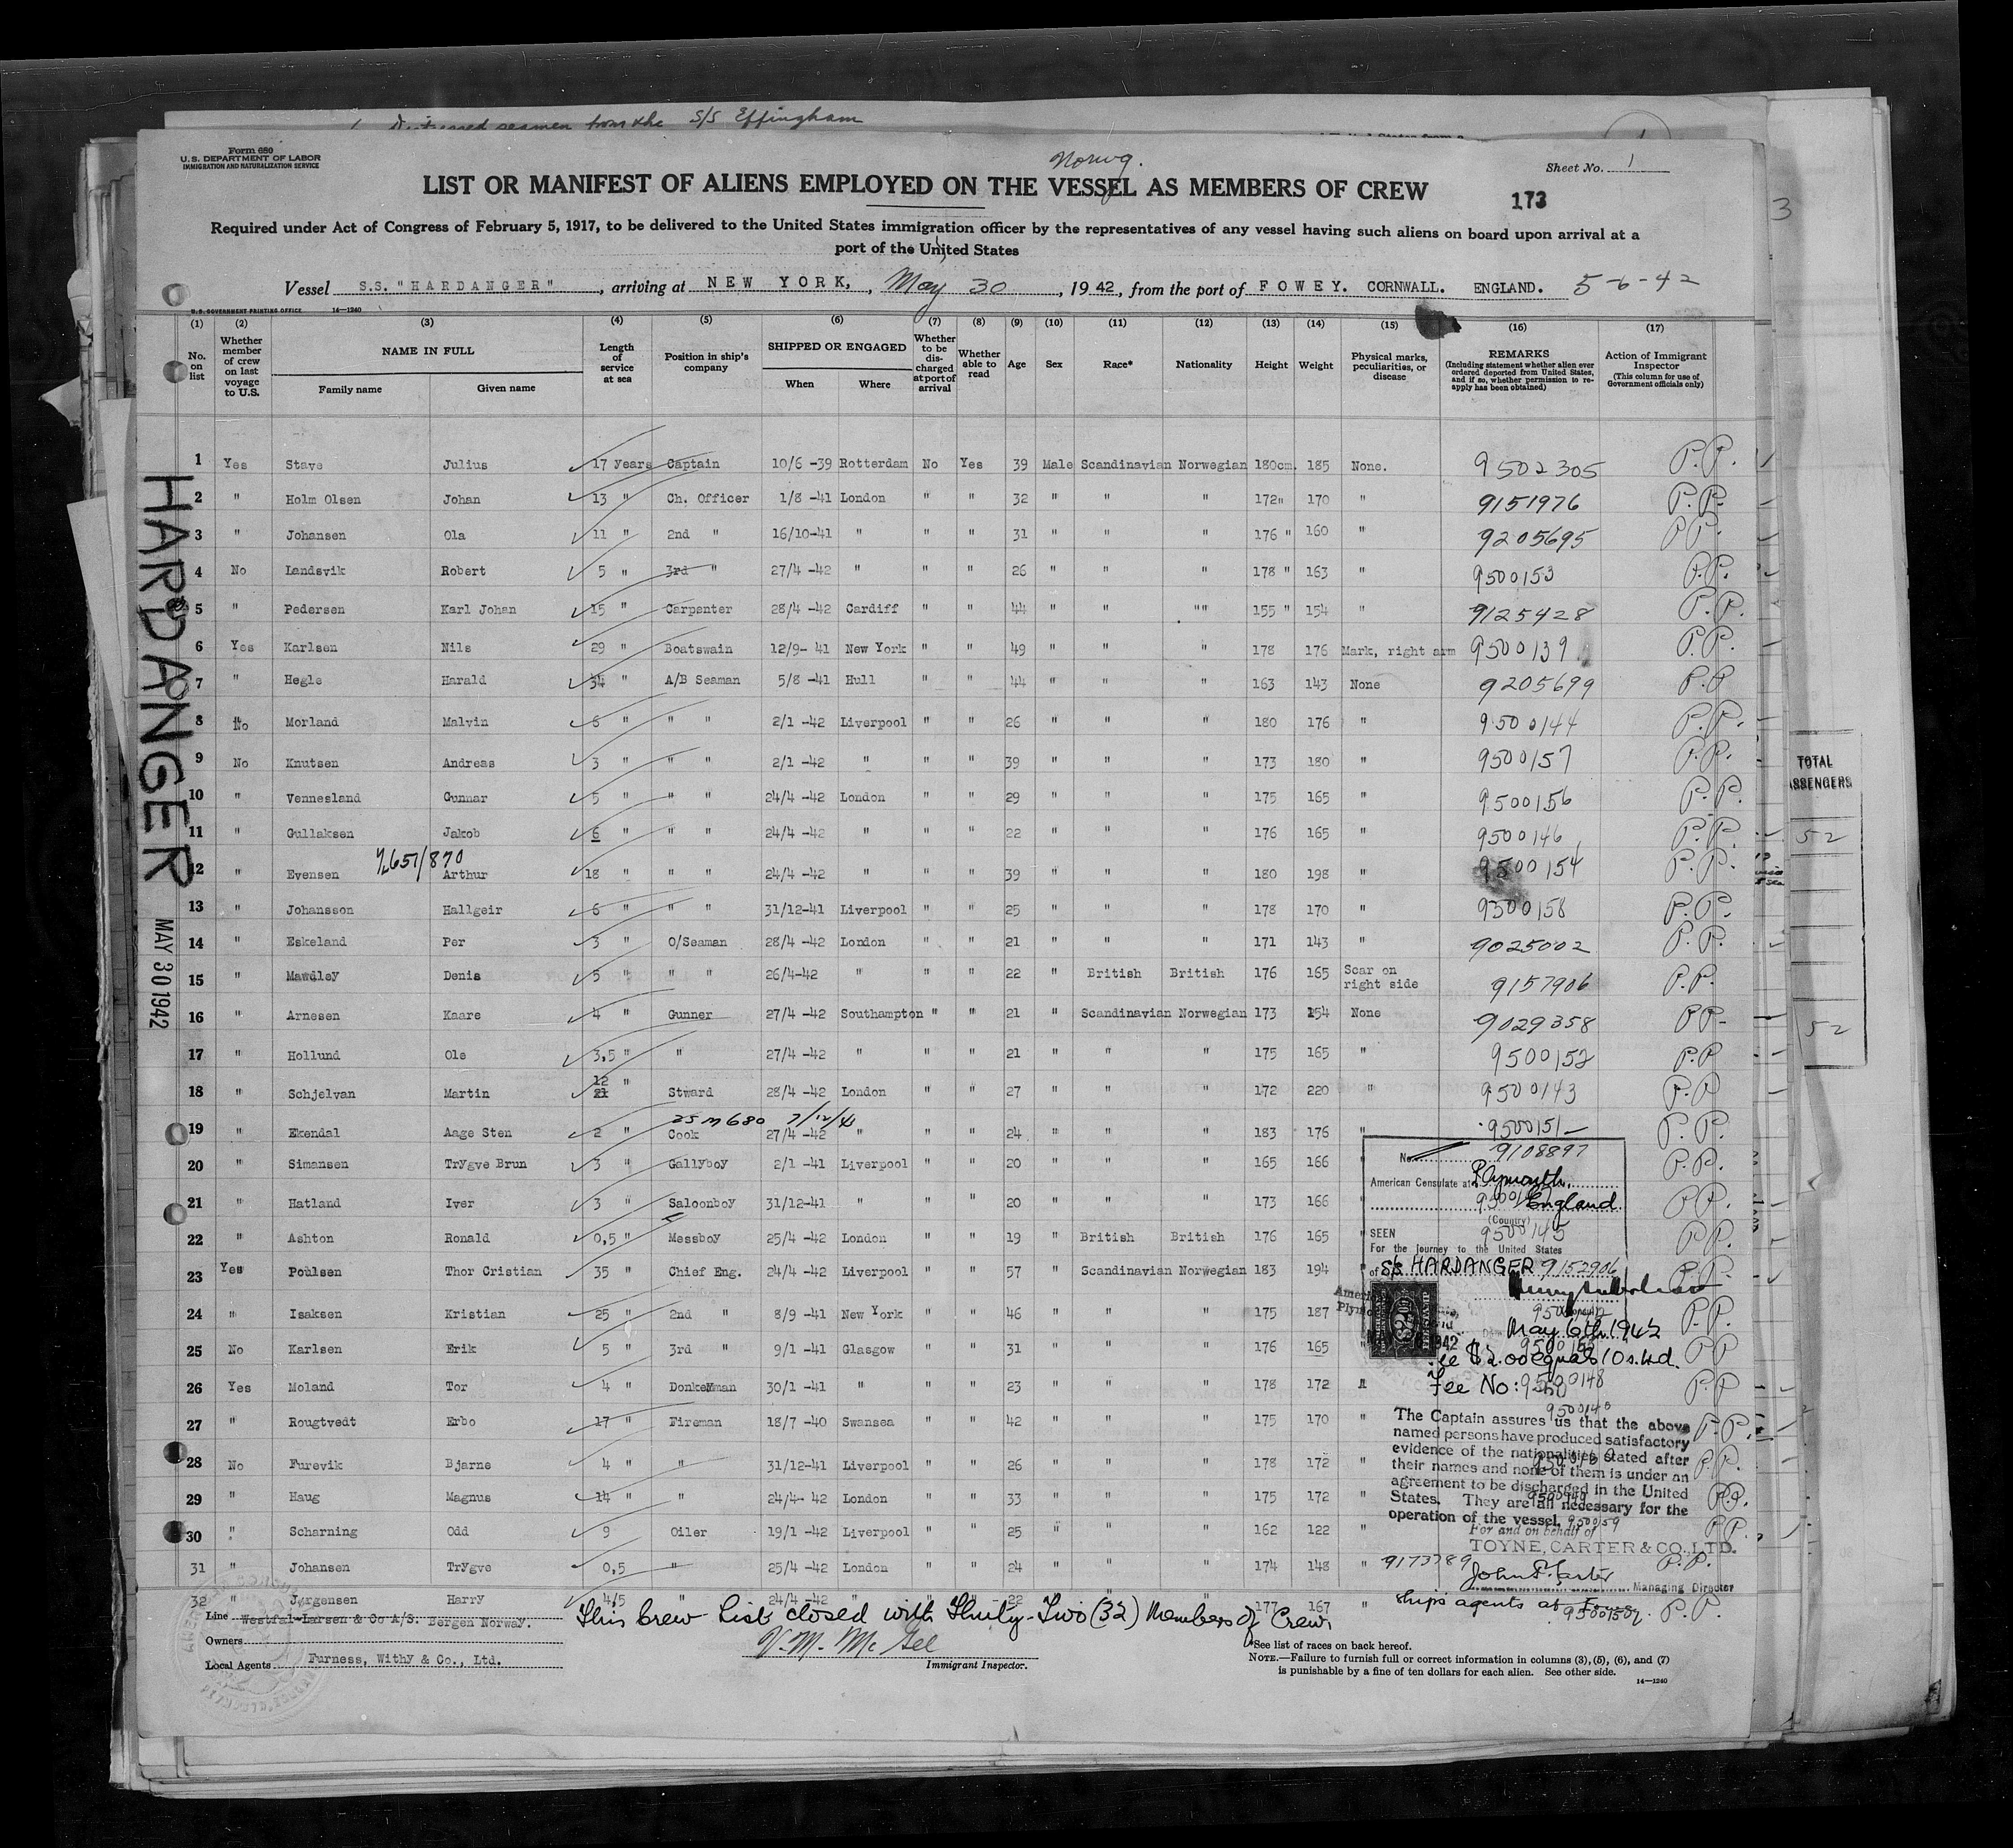 Distressed seamen from the S/S Effingham
Form 680
U.S. DEPARTMENT OF LABOR
IMMIGRATION AND NATURALIZATION SERVICE
Norwg.
Sheet No. 1
LIST OR MANIFEST OF ALIENS EMPLOYED ON THE VESSEL AS MEMBERS OF CREW
173
Required under Act of Congress of February 5, 1917, to be delivered to the United States immigration officer by the representatives of any vessel having such aliens on board upon arrival at a
port of the United States
Vessel S.S. "HARDANGER", arriving at NEW YORK, May 30, 1942, from the port of FOWEY. CORNWALL. ENGLAND. 5-6-42
U.S. GOVERNMENT PRINTING OFFICE 14—1240
(1) (2) (3) (4) (5) (6) (7) (8) (9) (10) (11) (12) (13) (14) (15) (16) (17)
No. on list
Whether member of crew on last voyage to U.S.
NAME IN FULL
Family name Given name
Length of service at sea
Position in ship's company
SHIPPED OR ENGAGED
When Where
Whether to be discharged at port of arrival
Whether able to read
Age Sex Race* Nationality Height Weight
Physical marks, peculiarities, or disease
REMARKS
(Including statement whether alien ever ordered deported from United States, and if so, whether permission to reapply has been obtained)
Action of Immigrant Inspector
(This column for use of Government officials only)
1 Yes Stave Julius 17 years Captain 10/6 -39 Rotterdam No Yes 39 Male Scandinavian Norwegian 180cm. 185 None. 9502305 P.P.
2 " Holm Olsen Johan 13 " Ch. Officer 1/8 -41 London " " 32 " " " 172" 170 " 9151976 P.P.
3 " Johansen Ola 11 " 2nd " 16/10-41 " " " 31 " " " 176 " 160 " 9205695 P.P.
4 No Landsvik Robert 5 " 3rd " 27/4 -42 " " " 26 " " " 178 " 163 " 9500153 P.P.
5 " Pedersen Karl Johan 15 " Carpenter 28/4 -42 Cardiff " " 44 " " "" 155 " 154 " 9125428 P.P.
6 Yes Karlsen Nils 29 " Boatswain 12/9- 41 New York " " 49 " " " 178 176 Mark, right arm 9500139 P.P.
7 " Hegle Harald 34 " A/B Seaman 5/8 -41 Hull " " 44 " " " 163 143 None 9205699 P.P
8 No Morland Malvin 6 " " " 2/1 -42 Liverpool " " 26 " " " 180 176 " 9500144 P.P.
9 No Knutsen Andreas 3 " " " 2/1 -42 " " " 39 " " " 173 180 " 9500157 P.P.
10 " Vennesland Gunnar 5 " " " 24/4 -42 London " " 29 " " " 175 165 " 9500156 P.P.
11 " Gullaksen Jakob 6 " " " 24/4 -42 " " " 22 " " " 176 165 " 9500146 P.P.
12 " Evensen 7/651/870 Arthur 18 " " " 24/4 -42 " " " 39 " " " 180 198 " 9500154 P.P.
13 " Johansson Hallgeir 6 " " " 31/12-41 Liverpool " " 25 " " " 178 170 " 9500158 P.P.
14 " Eskeland Per 3 " O/Seaman 28/4 -42 London " " 21 " " " 171 143 " 9025002 P.P.
15 " Mawdley Denis 5 " " " 26/4-42 " " " 22 " British British 176 165 Scar on right side 9157906 P.P.
16 " Arnesen Kaare 4 " Gunner 27/4 -42 Southampton " " 21 " Scandinavian Norwegian 173 154 None 9029358 P.P.
17 " Hollund Ole 3,5 " " 27/4 -42 " " " 21 " " " 175 165 " 9500152 P.P
18 " Schjelvan Martin 12 21 " Stward 28/4 -42 London " " 27 " " " 172 220 " 9500143 P.P
25 m 680 7/12/41
19 " Ekendal Aage Sten 2 " Cook 27/4 -42 " " " 24 " " " 183 176 " 9500151 P.P.
20 " Simansen Trygve Brun 3 " Gallyboy 2/1 -41 Liverpool " " 20 " " " 165 166 " 9108897 P.P.
21 " Hatland Iver 3 " Saloonboy 31/12-41 " " " 20 " " " 173 166 P.P.
22 " Ashton Ronald 0,5 " Messboy 25/4 -42 London " " 19 " British British 176 165 " 9500145 P.P.
23 Yes Poulsen Thor Cristian 35 " Chief Eng. 24/4 -42 Liverpool " " 57 " Scandinavian Norwegian 183 194 " 9152906 P.P.
24 " Isaksen Kristian 25 " 2nd " 8/9 -41 New York " " 46 " " " 175 187 P.P.
25 No Karlsen Erik 5 " 3rd " 9/1 -41 Glasgow " " 31 " " " 176 165 " P.P
26 Yes Moland Tor 4 " Donkeyman 30/1 -41 " " " 23 " " " 178 172 " 9500148 P.P
27 " Rougtvedt Erbo 17 " Fireman 18/7 -40 Swansea " " 42 " " " 175 170 " P.P.
28 No Furevik Bjarne 4 " " 31/12-41 Liverpool " " 26 " " " 178 172 " P.P.
29 " Haug Magnus 14 " " 24/4- 42 London " " 33 " " " 175 172 " P.P.
30 " Scharning Odd 9 Oiler 19/1 -42 Liverpool " " 25 " " " 162 122 " 9500159 P.P.
31 " Johansen Trygve 0,5 " 25/4 -42 London " " 24 " " " 174 148 " 9173789 P.P.
32 " Jørgensen Harry 4/5 " 24/4 -42 " " " 22 " " " 177 167 " P.P.
HARDANGER
MAY 30 1942
No.
American Consulate at Plymouth,
England
(Country)
SEEN
For the journey to the United States
of S/S HARDANGER
May 6th. 1942
Fee $2.00 equals 10s.
Fee No:
The Captain assures us that the above
named persons have produced satisfactory
evidence of the nationalities stated after
their names and none of them is under an
agreement to be discharged in the United
States. They are all necessary for the
operation of the vessel.
For and on behalf of
TOYNE, CARTER & CO., LTD.
Managing Director
Ship's agents at Fowey.
Line Westfal-Larsen & Co A/S. Bergen Norway.
This Crew List closed with Thirty-Two (32) Members of Crew.
Owners
V.M. McGee
Immigrant Inspector.
Local Agents Furness, Withy & Co., Ltd.
*See list of races on back hereof.
NOTE.—Failure to furnish full or correct information in columns (3), (5), (6), and (7)
is punishable by a fine of ten dollars for each alien. See other side.
14—1240
3
TOTAL
PASSENGERS
52
52